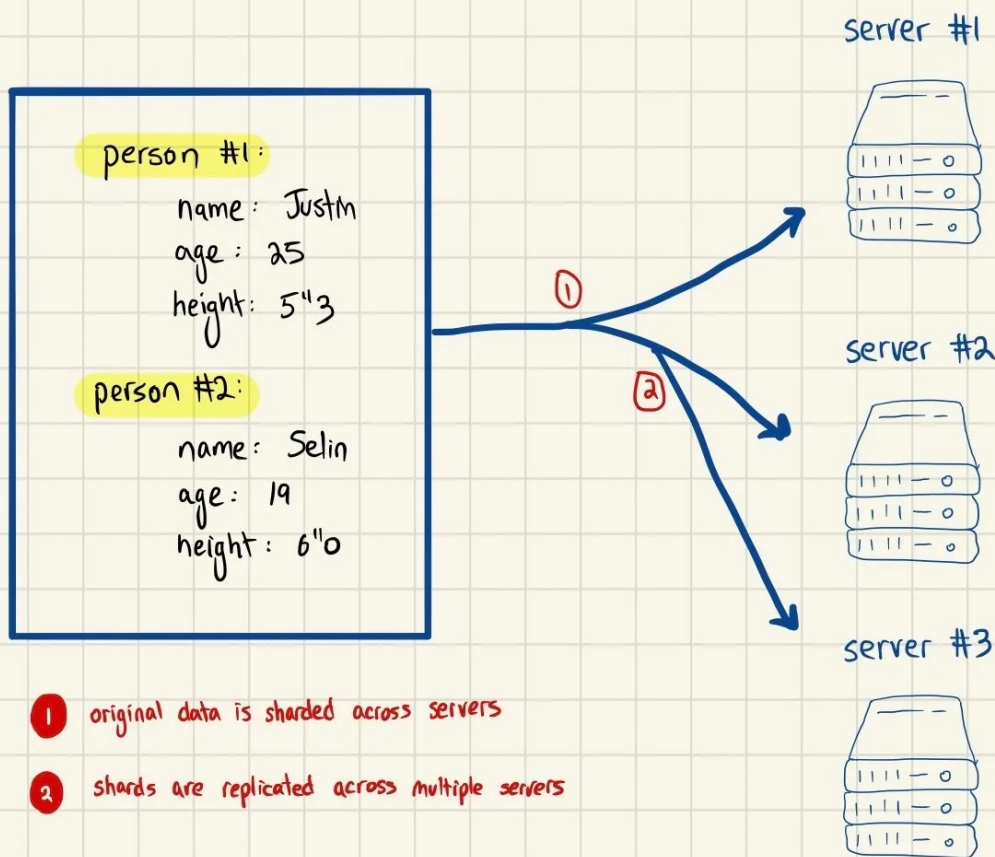 server #1
person #1:
name: Justin
age: 25
height: 5"3
person #2:
name: Selin
age: 19
height: 6"0
1
2
server #2
server #3
1 original data is sharded across servers
2 shards are replicated across multiple servers